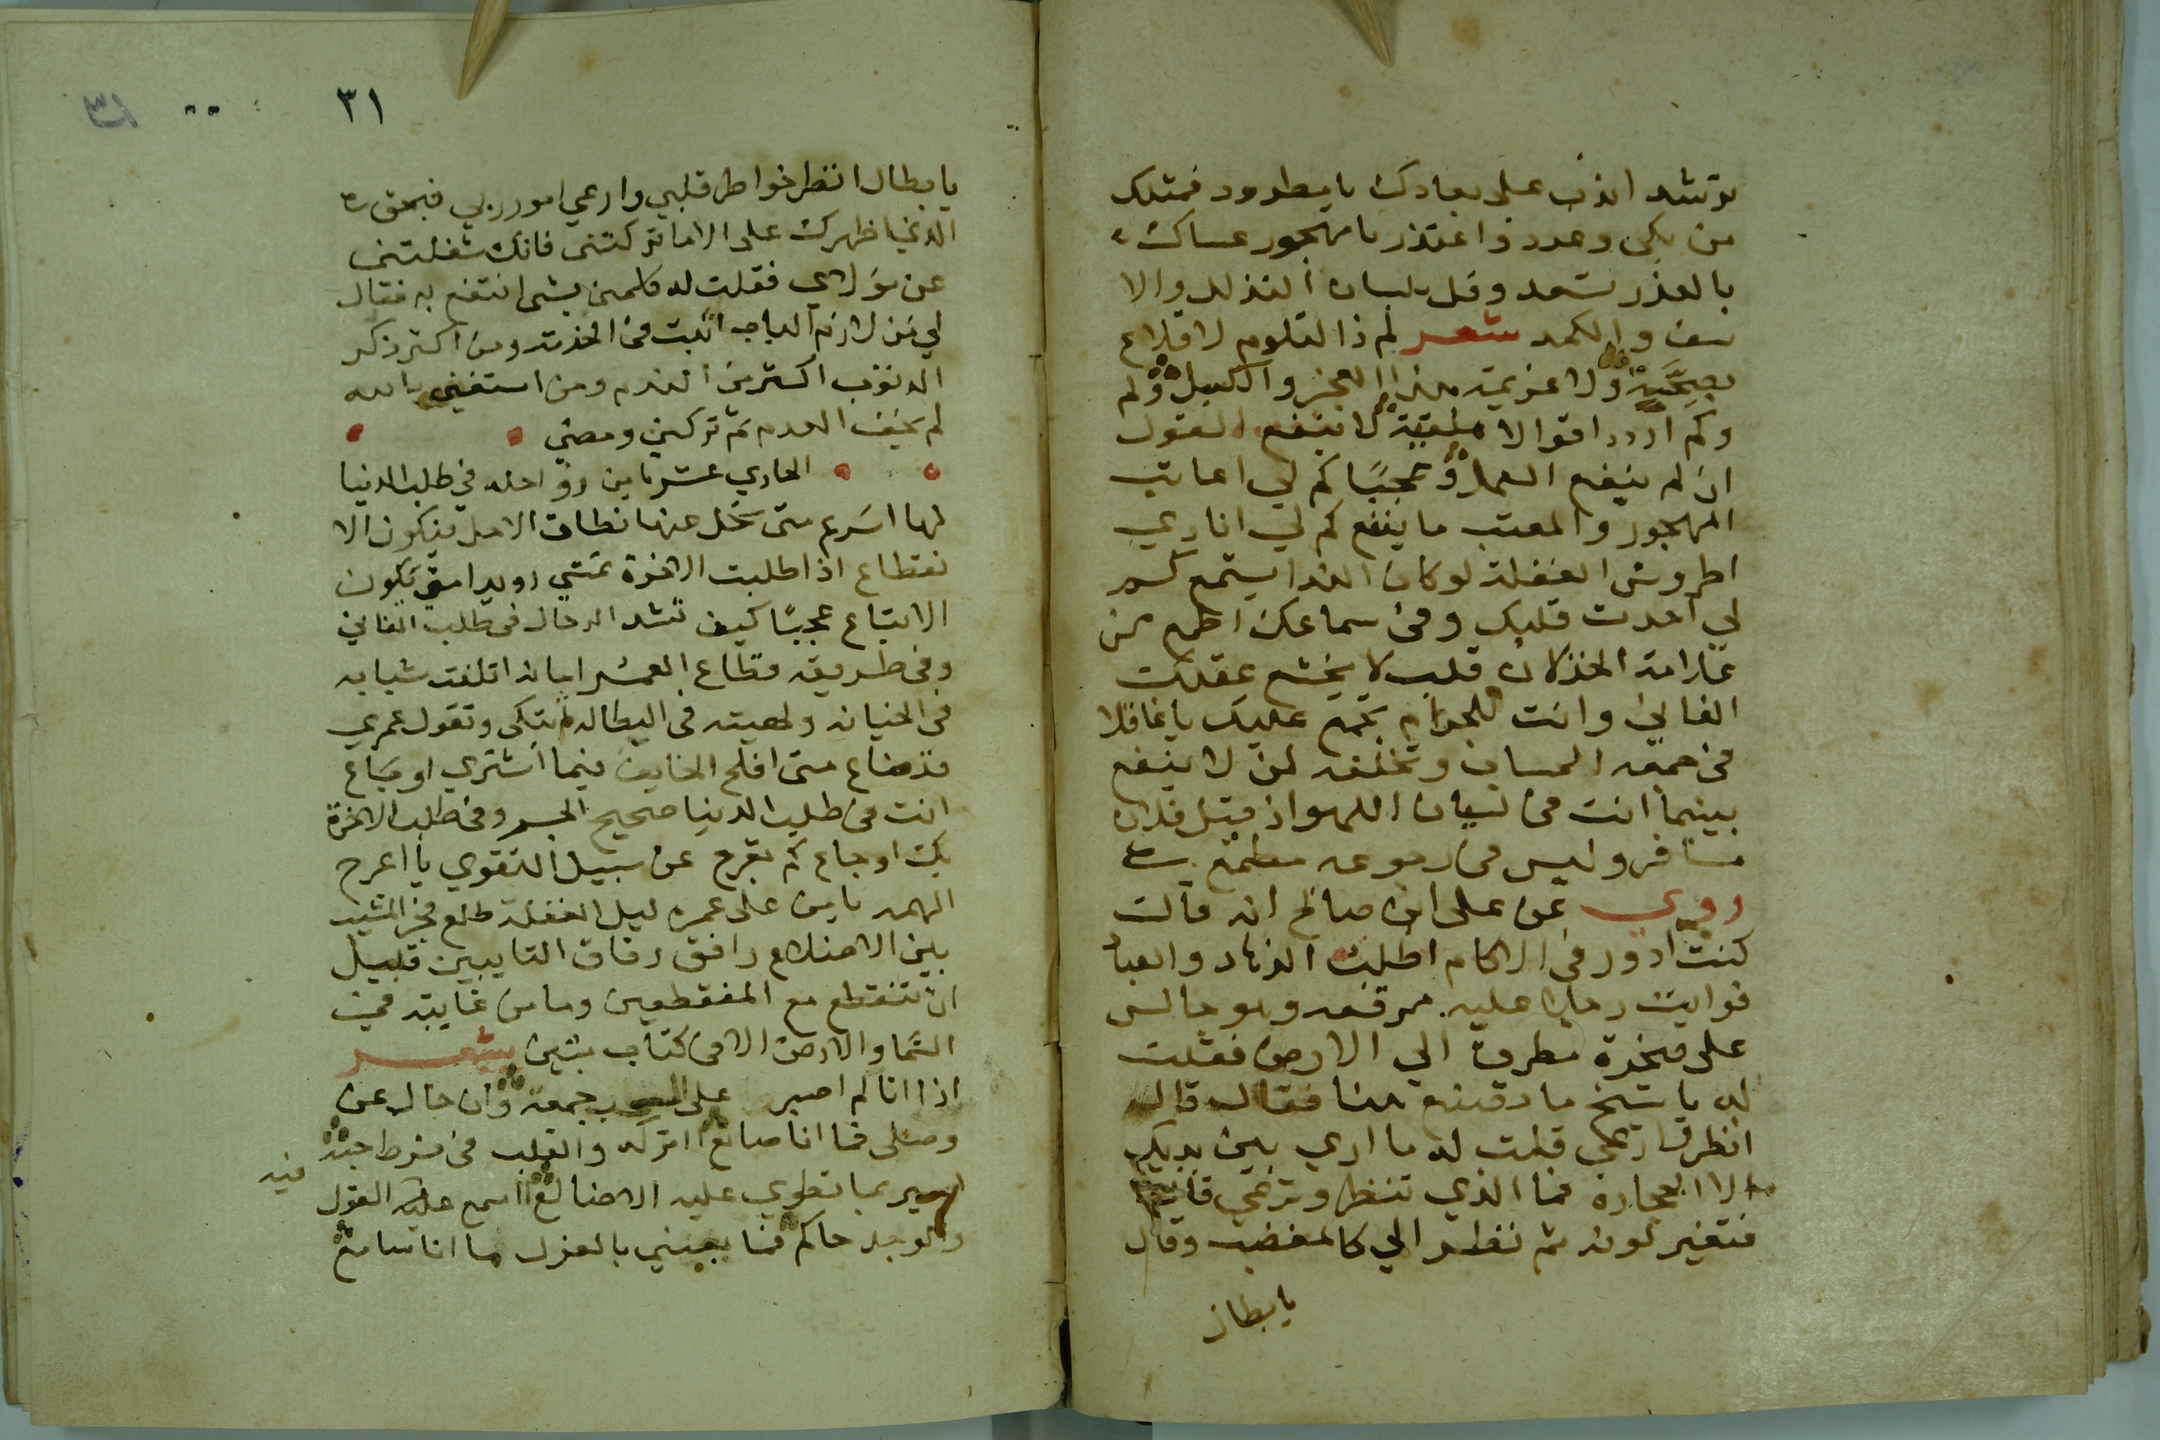 توتشد اندب على بعادك يا مطرود فمثلك
من بكى وعدد واعتذر يا مهجور عساك
بالعذر تسعد وقل بلسان التذلل والا
سف والكمد شعر لم ذا التلوم لا قلاع
ولا عزيمة هذا العجز والكسل ولم
وكم اردد اقوالا ملفقة لا ينفع القول
ان لم ينفع العمل عجبًا كم لي اعاتب
المهجور والعتب ما ينفع كم لي انادي
اطروش الغفلة لو كان الندا يسمع كم
لي احدث قلبك وفي سماعك اطمع من
علامة الخذلان قلب لا يخشع عقلت
الفاني وانت للحرام تجمع عليك يا غافلا
في جمعه الحساب وتخلفه لمن لا ينفع
بينما انت في لسان اللهو اذ قيل فلان
مسافر وليس في رجوعه مطمع
روي عن على ابن صالح انه قالت
كنت ادور في الاكام اطلب الزهاد والعباد
فرايت رجلا عليه مرقعه وهو جالس
على صخرة مطرق الي الارض فقلت
له يا شيخ ما تصنع هنا فقال قال
انظر وارعى قلت له ما ارى بين يديك
الا الحجارة فما الذي تنظر وترعى قال
فتغير لونه ثم نظر الي كالمغضب وقال
يا بطال
٣١
يا بطال انظر خواطر قلبي وارعي امور ربي فبحق
الذي اظهرك على الا ما تركتني فانك شغلتني
عن مولاي فقلت له كلمني بشى انتفع به فقال
لي من لازم الباب اثبت في الخدمة ومن اكثر ذكر
الذنوب اكثر من الندم ومن استغنى بالله
لم يخف العدم ثم تركني ومضى
الحادي عشر يا من رواحله في طلب الدنيا
لها اسرع متى تحل عنها نطاق الامل فيكون الا
نقطاع اذا طلبت الاخرة تمشي رويدا متى يكون
الاتباع عجبًا كيف تشد الرحال في طلب الفاني
وفي طريقه قطاع العمر امانه اتلفت شبابه
في الخيانه ولهيته في البطاله تبكى وتقول عمري
قد ضاع متى افلح الخاين فيما اشتري او باع
انت في طلب الدنيا صحيح الجسم وفي طلب الاخرة
بك اوجاع كم تعرج عن سبيل التقوي يا اعرج
الهمه يا من على عمره ليل الغفلة طلع فجر المشيب
بين الاضلاع رافق رفاق التايبين قبيل
ان تنقطع مع المنقطعين وما من غايبه في
السما والارض الا في كتاب مبين شعر
اذا انا لم اصبر على جمعة وان حال عن
وصلى فما انا صانع اتركه والقلب في فرط حبه
فيه
اسير بما تطوي عليه الاضالع السمع عليك القول
والوجد حاكم فما يعيبني بالعزل ما انا سامع